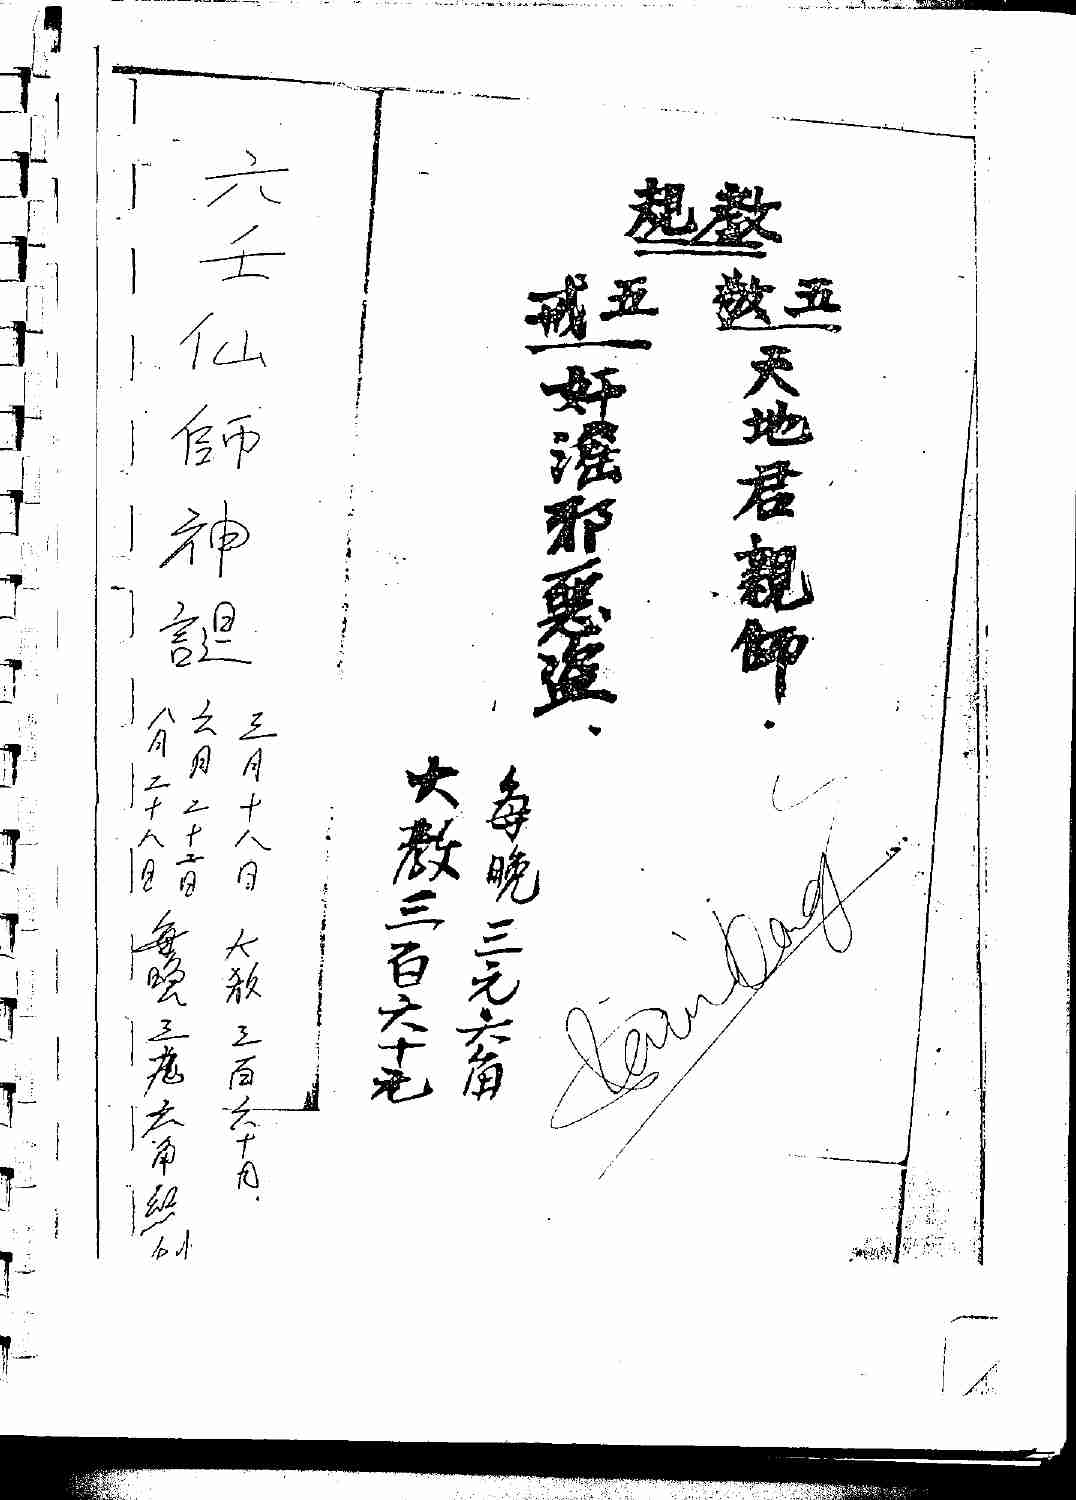 教規
五敬
天地君親師
五戒
奸淫邪惡盜
每晚三元六角
大教三百六十元
六壬仙師神誕
三月十八日 大教三百六十
六月二十二日
八月二十八日 每晚三元六角